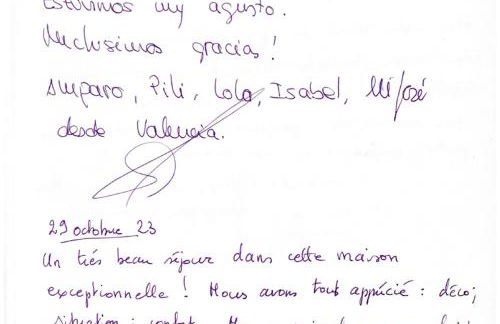 Estuvimos muy agusto.
Muchisimas gracias!
Amparo, Pili, Lola, Isabel, Mª José
desde Valencia.
29 octobre 23
Un très beau séjour dans cette maison
exceptionnelle ! Nous avons tout apprécié : déco ;
situation ; confort. Nous